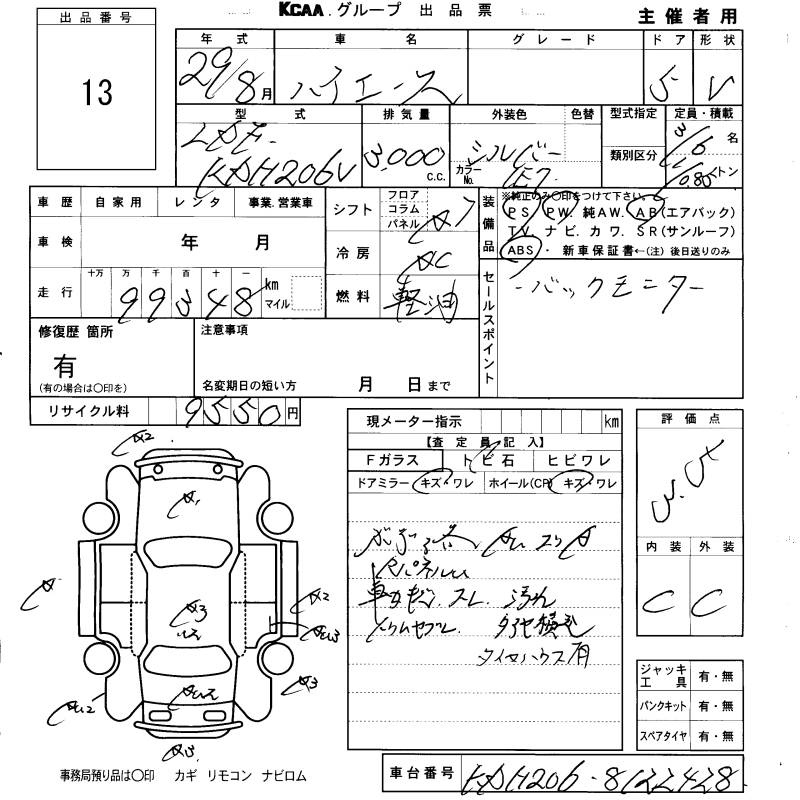 KCAA.グループ 出品票
主催者用
出品番号
13
年式 車名 グレード ドア 形状
29/8月 ハイエース 5 V
型式 排気量 外装色 色替 型式指定 定員・積載
LDF-
KDH206V 3,000 c.c. シルバー 類別区分 3/6 名
カラーNo. 1E7 トン
車歴 自家用 レンタ 事業.営業車
シフト フロア コラム パネル
装備品 ※純正のみ○印をつけて下さい。
PS. PW. 純AW. AB(エアバック)
TV. ナビ. カワ. SR(サンルーフ)
ABS・ 新車保証書←(注) 後日送りのみ
車検 年 月
冷房 AC
走行 十万 万 千 百 十 一 km マイル
99348
燃料 軽油
セールスポイント
・バックモニター
修復歴 箇所
有
(有の場合は○印を)
注意事項
名変期日の短い方 月 日まで
リサイクル料 9550円
現メーター指示 km
【査定員記入】
Fガラス トビ石 ヒビワレ
ドアミラー キズ・ワレ ホイール(CP) キズ・ワレ
評価点
内装 外装
C C
スレ 汚れ
タイヤハウス
A2
A1
A
A3
A2
AU3
A3
AU2
AU2
A3
ジャッキ工具 有・無
パンクキット 有・無
スペアタイヤ 有・無
事務局預り品は○印 カギ リモコン ナビロム
車台番号 KDH206-8122428